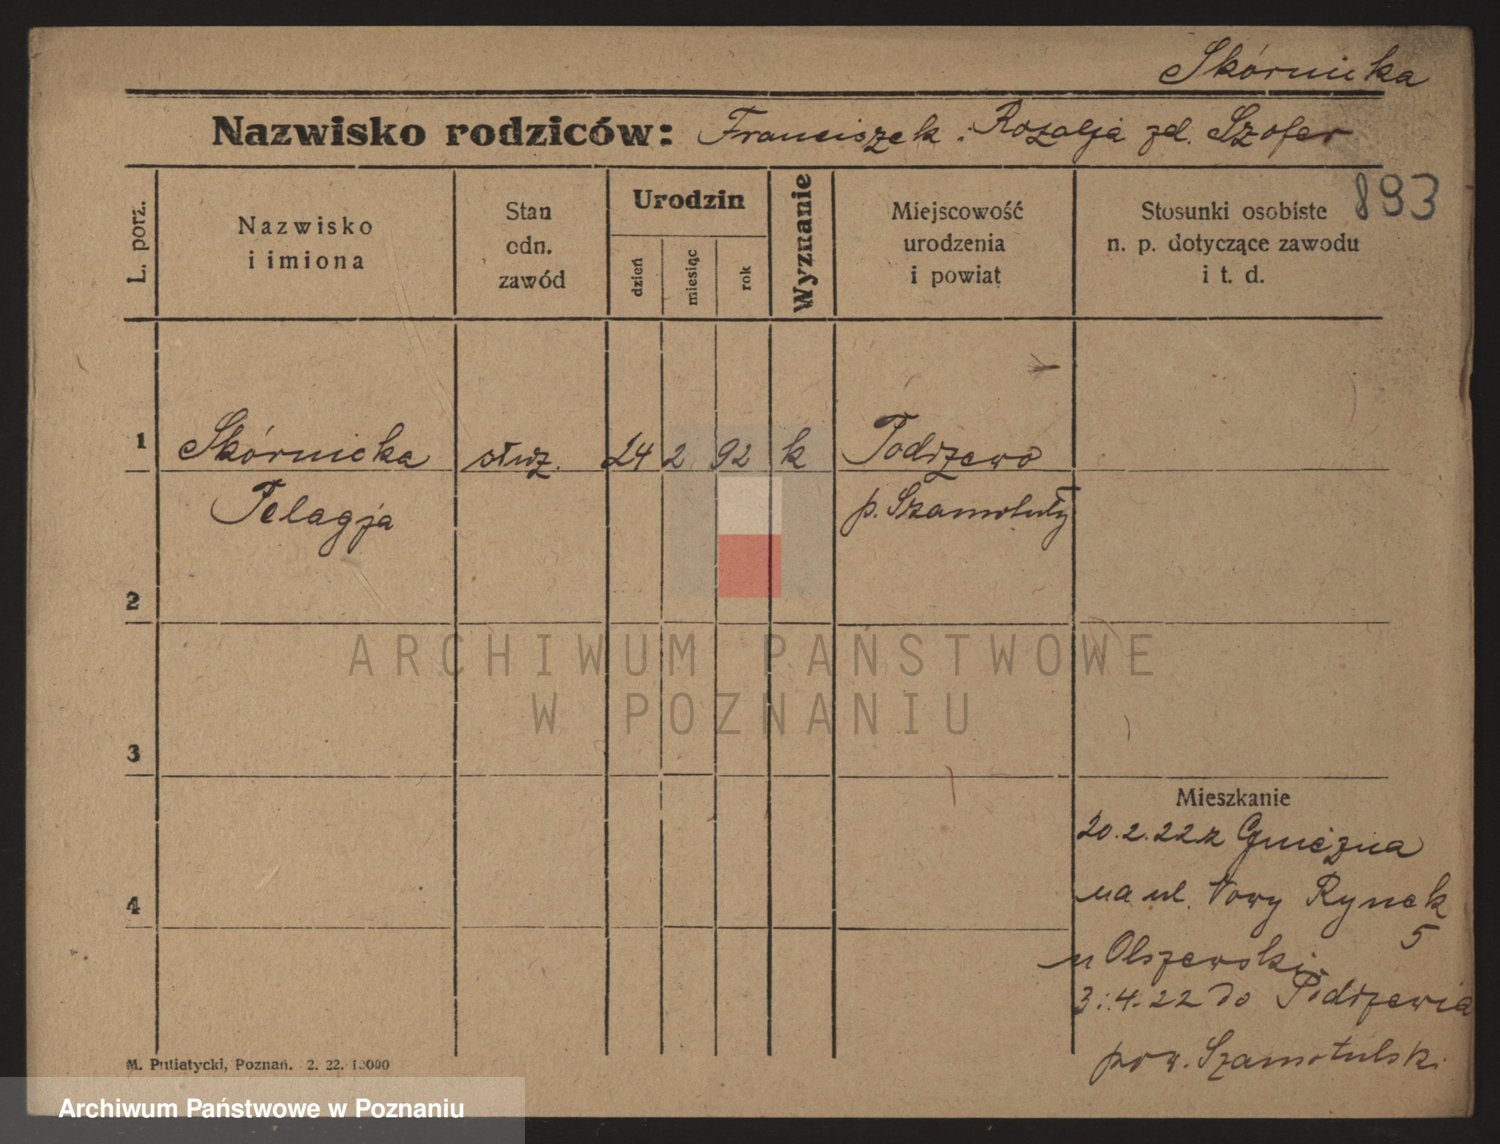 Skórnicka
Nazwisko rodziców: Franciszek i Rozalja zd. Szofer
893
L. porz.
Nazwisko
i imiona
Stan
odn.
zawód
Urodzin
dzień
miesiąc
rok
Wyznanie
Miejscowość
urodzenia
i powiat
Stosunki osobiste
n. p. dotyczące zawodu
i t. d.
1 Skórnicka służ. 24 2 92 k Podrzewo
Pelagja p. Szamotuły
2
ARCHIWUM PAŃSTWOWE
W POZNANIU
3
Mieszkanie
20.2.22 z Gniezna
na ul. Nowy Rynek
5
4
u Olszewskiej
3.4.22 do Podrzewia
pow. Szamotulski
M. Putiatycki, Poznań. 2. 22. 10000
Archiwum Państwowe w Poznaniu